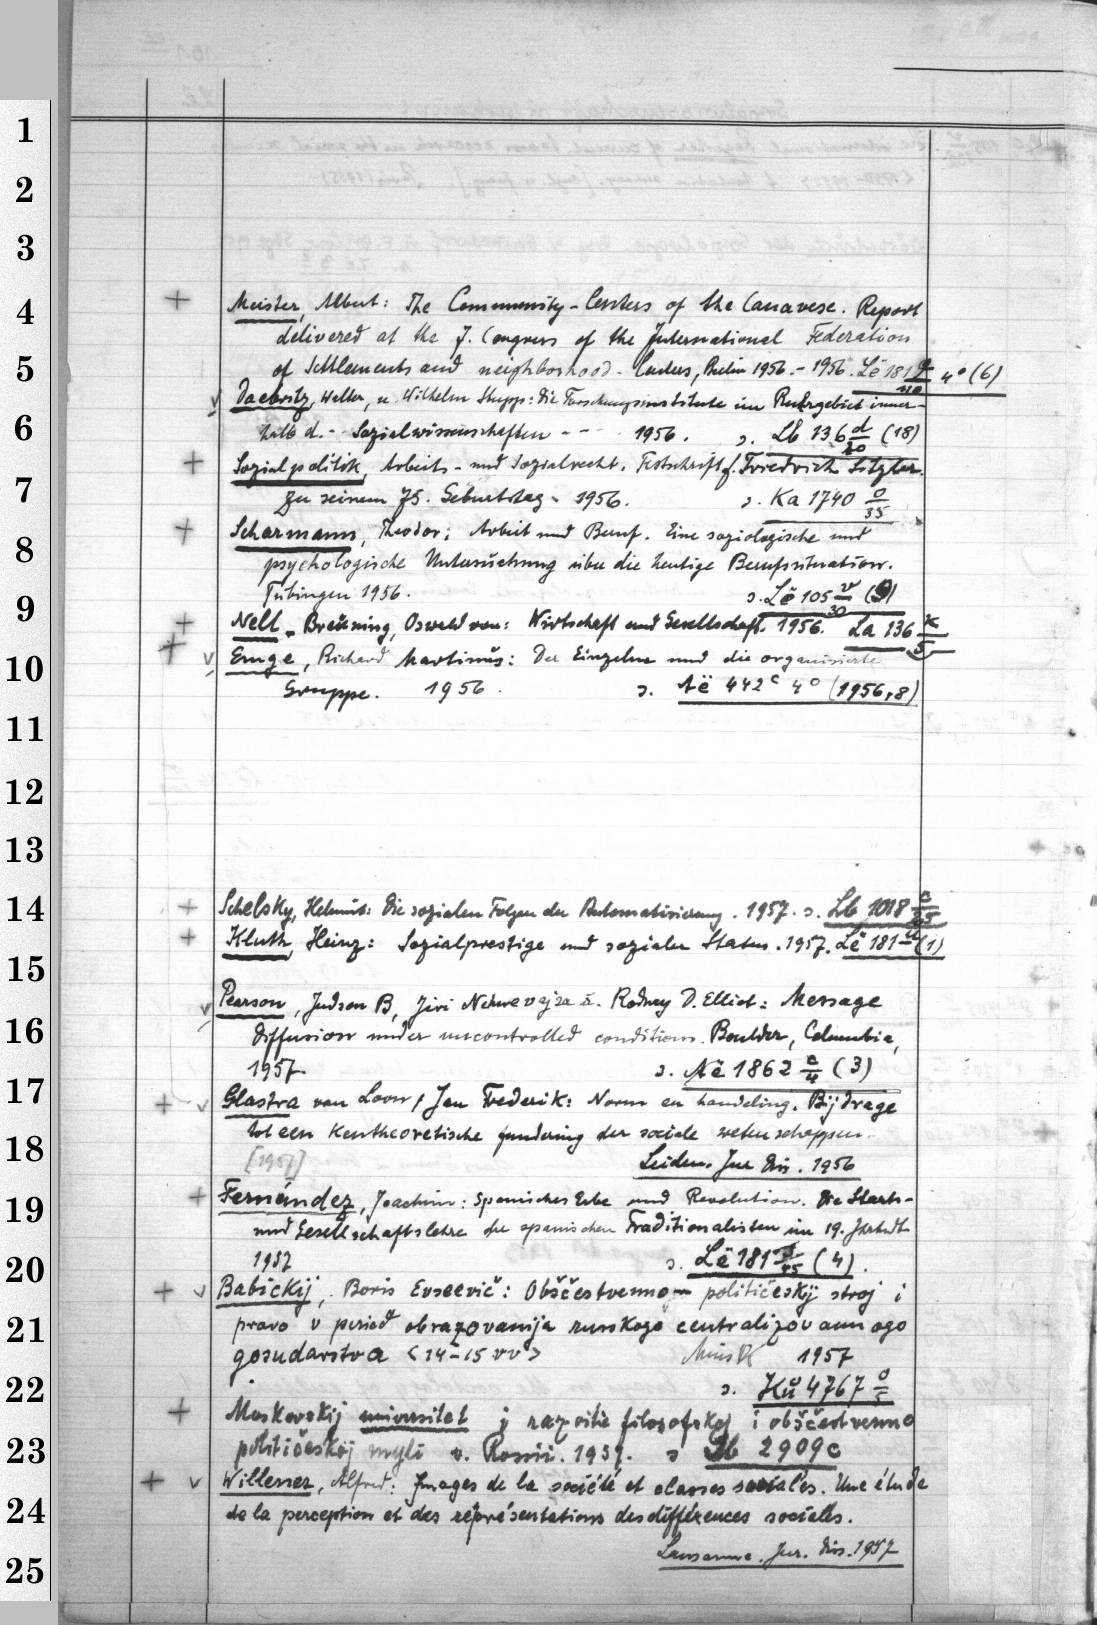 1
2
3
4
5
6
7
8
9
10
11
12
13
14
15
16
17
18
19
20
21
22
23
24
25
+ Meister, Albert: The Community-Centers of the Canavese. Report
delivered at the 7. Congress of the International Federation
of Settlements and neighborhood-Centers, Berlin 1956. - 1956. Lë 181 4° (6)
Daebritz, Walter, u. Wilhelm Stupp: Die Forschungsinstitute im Ruhrgebiet inner-
halb d. - Sozialwissenschaften - - 1956. s. Lb 136 d/20 (18)
+ Sozialpolitik, Arbeits- und Sozialrecht. Festschrift f. Friedrich Sitzler
zu seinem 75. Geburtstag. 1956. s. Ka 1740 o/35
+ Scharmann, Theodor: Arbeit und Beruf. Eine soziologische und
psychologische Untersuchung über die heutige Berufssituation.
Tübingen 1956. s. Lë 105 v/30 (9)
+ Nell-Breuning, Oswald von: Wirtschaft und Gesellschaft. 1956. La 136 k/5
+ Emge, Richard Martinus: Der Einzelne und die organisierte
Gruppe. 1956. s. Aë 442c 4° (1956,8)
+ Schelsky, Helmut: Die sozialen Folgen der Automatisierung. 1957. s. Lb 1018
+ Kluth, Heinz: Sozialprestige und sozialer Status. 1957. Lë 181 (1)
Pearson, Judson B, Jiri Nehnevajsa u. Rodney D. Elliot: Message
diffusion under uncontrolled conditions. Boulder, Columbia,
1957. s. Aë 1862 c/4 (3)
+ Glastra van Loon, Jan Frederik: Norm en handeling. Bijdrage
tot een kentheoretische fundering der sociale wetenschappen.
[1957] Leiden. Jur. Dis. 1956
+ Fernández, Joachim: Spanisches Erbe und Revolution. Die Staats-
und Gesellschaftslehre der spanischen Traditionalisten im 19. Jahrhdt.
1957 s. Lë 181 (4).
+ Babickij, Boris Evseevič: Obščestvenno-političeskij stroj i
pravo v period obrazovanija russkogo centralizovannogo
gosudarstva <14-15 vv> Minsk 1957
s. Kü 4767 o/5
+ Moskovskij universitet i razvitie filosofskoj i obščestvenno
političeskoj mysli v. Rossii. 1957. s Ib 2909c
+ Willener, Alfred: Images de la société et classes sociales. Une étude
de la perception et des représentations des différences sociales.
Lausanne. Jur. Dis. 1957